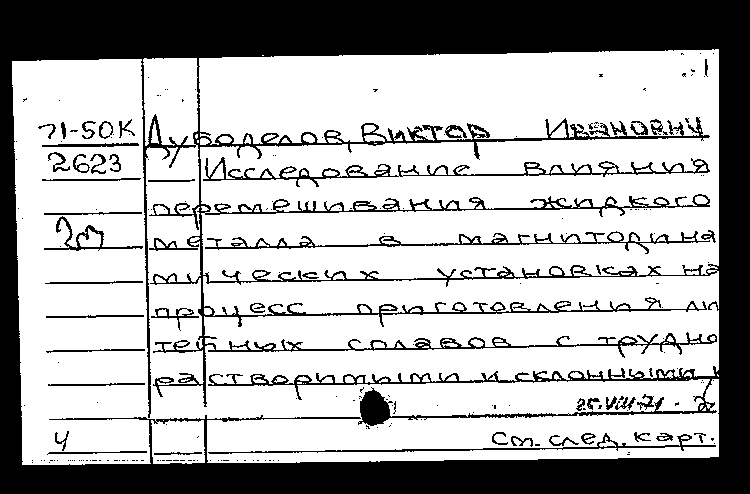 1
71-50К Дубоделов, Виктор Иванович
2623 Исследование влияния
перемешивания жидкого
2м металла в магнитодина
мических установках на
процесс приготовления ли
тейных сплавов с трудно
растворимыми и склонными к
25.VIII-71
4 См. след. карт.